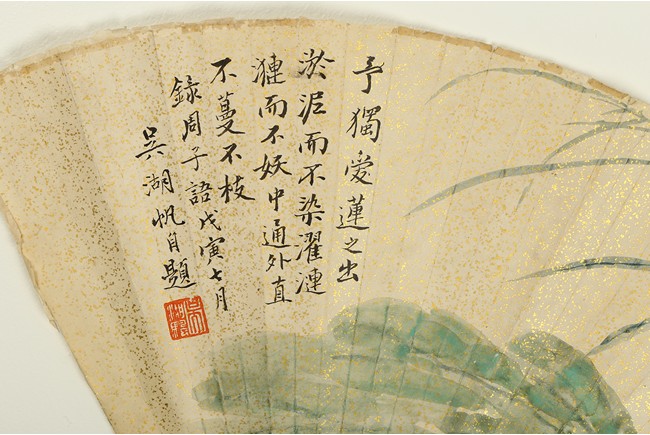 予獨愛蓮之出
淤泥而不染濯漣
漣而不妖中通外直
不蔓不枝
錄周子語戊寅七月
吳湖帆自題